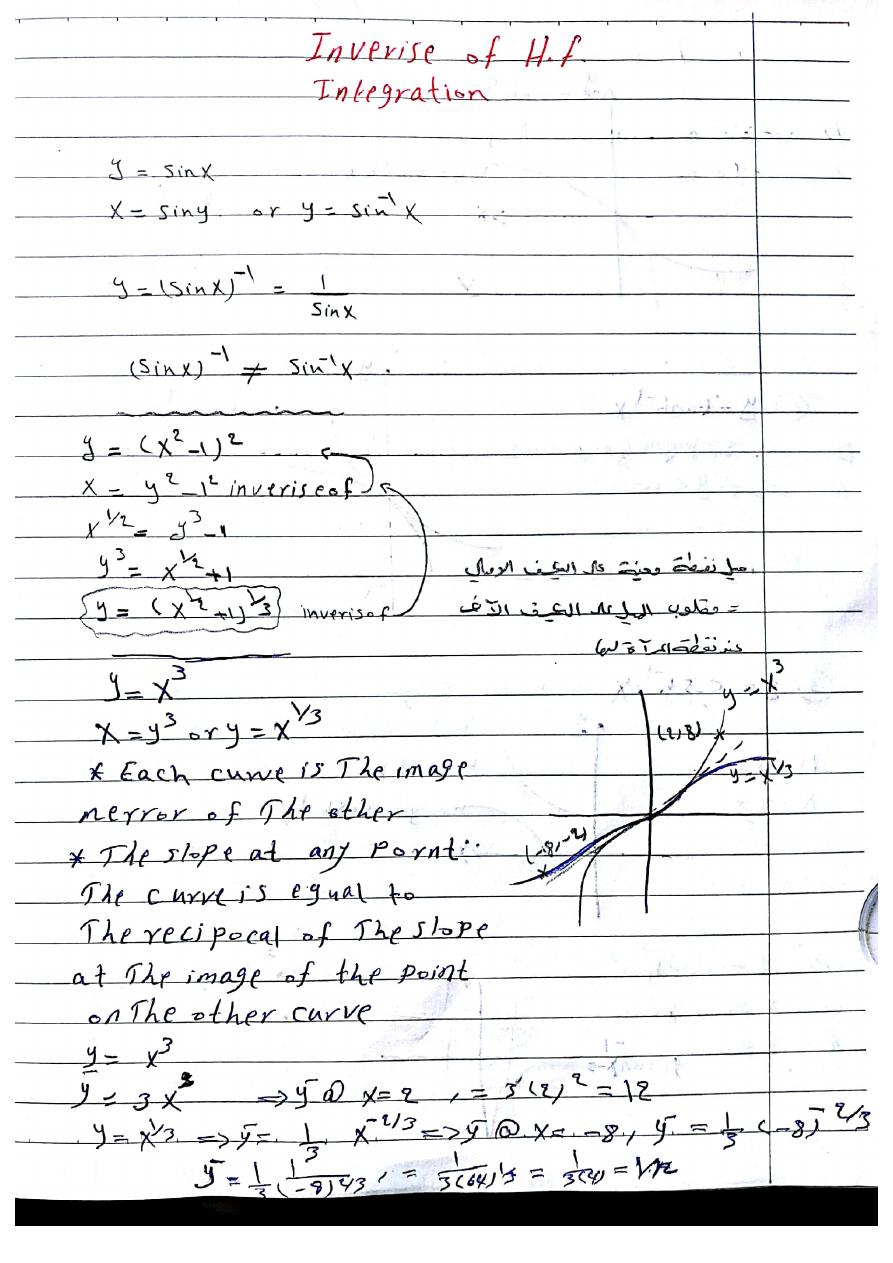 Inverise of H.f.
Integration
y = sinx
x = siny or y = sin⁻¹x
y = (sinx)⁻¹ = 1/sinx
(sinx)⁻¹ ≠ sin⁻¹x .
y = (x² -1)²
x = y² -1² inveriseof
x^1/2 = y³ -1
y³ = x^1/2 +1
y = (x^1/2 +1)^1/3 inverisof
ميل نقطة معينة
= مقلوب الميل على
عند نقطة المرآة لها
y = x³
x = y³ or y = x^1/3
* Each curve is The image
merror of The other
* The slope at any point
The curve is equal to
The recipocal of The slope
at The image of the point
on The other curve
y = x³
(2,8)
y = x^1/3
(-8,-2)
y = x³
ȳ = 3x² ⇒ ȳ @ x = 2 , = 3(2)² = 12
y = x^1/3 ⇒ ȳ = 1/3 x^-2/3 ⇒ ȳ @ x = -8, ȳ = 1/3 (-8)^-2/3
ȳ = 1/3 (1/(-8)^2/3 , = 1/3(64)^1/3 = 1/3(4) = 1/12